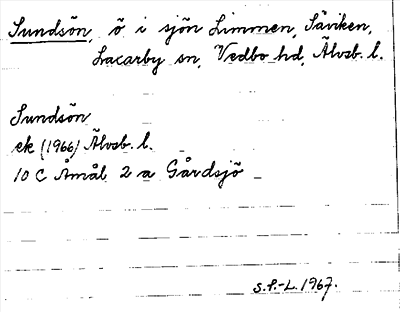 Sundsön, ö i sjön Limmen, Säviken,
Lacarby sn, Vedbo hd, Älvsb. l.
Sundsön
ek (1966) Älvsb. l.
10 C Åmål 2 a Gårdsjö
S.F.-L. 1967.